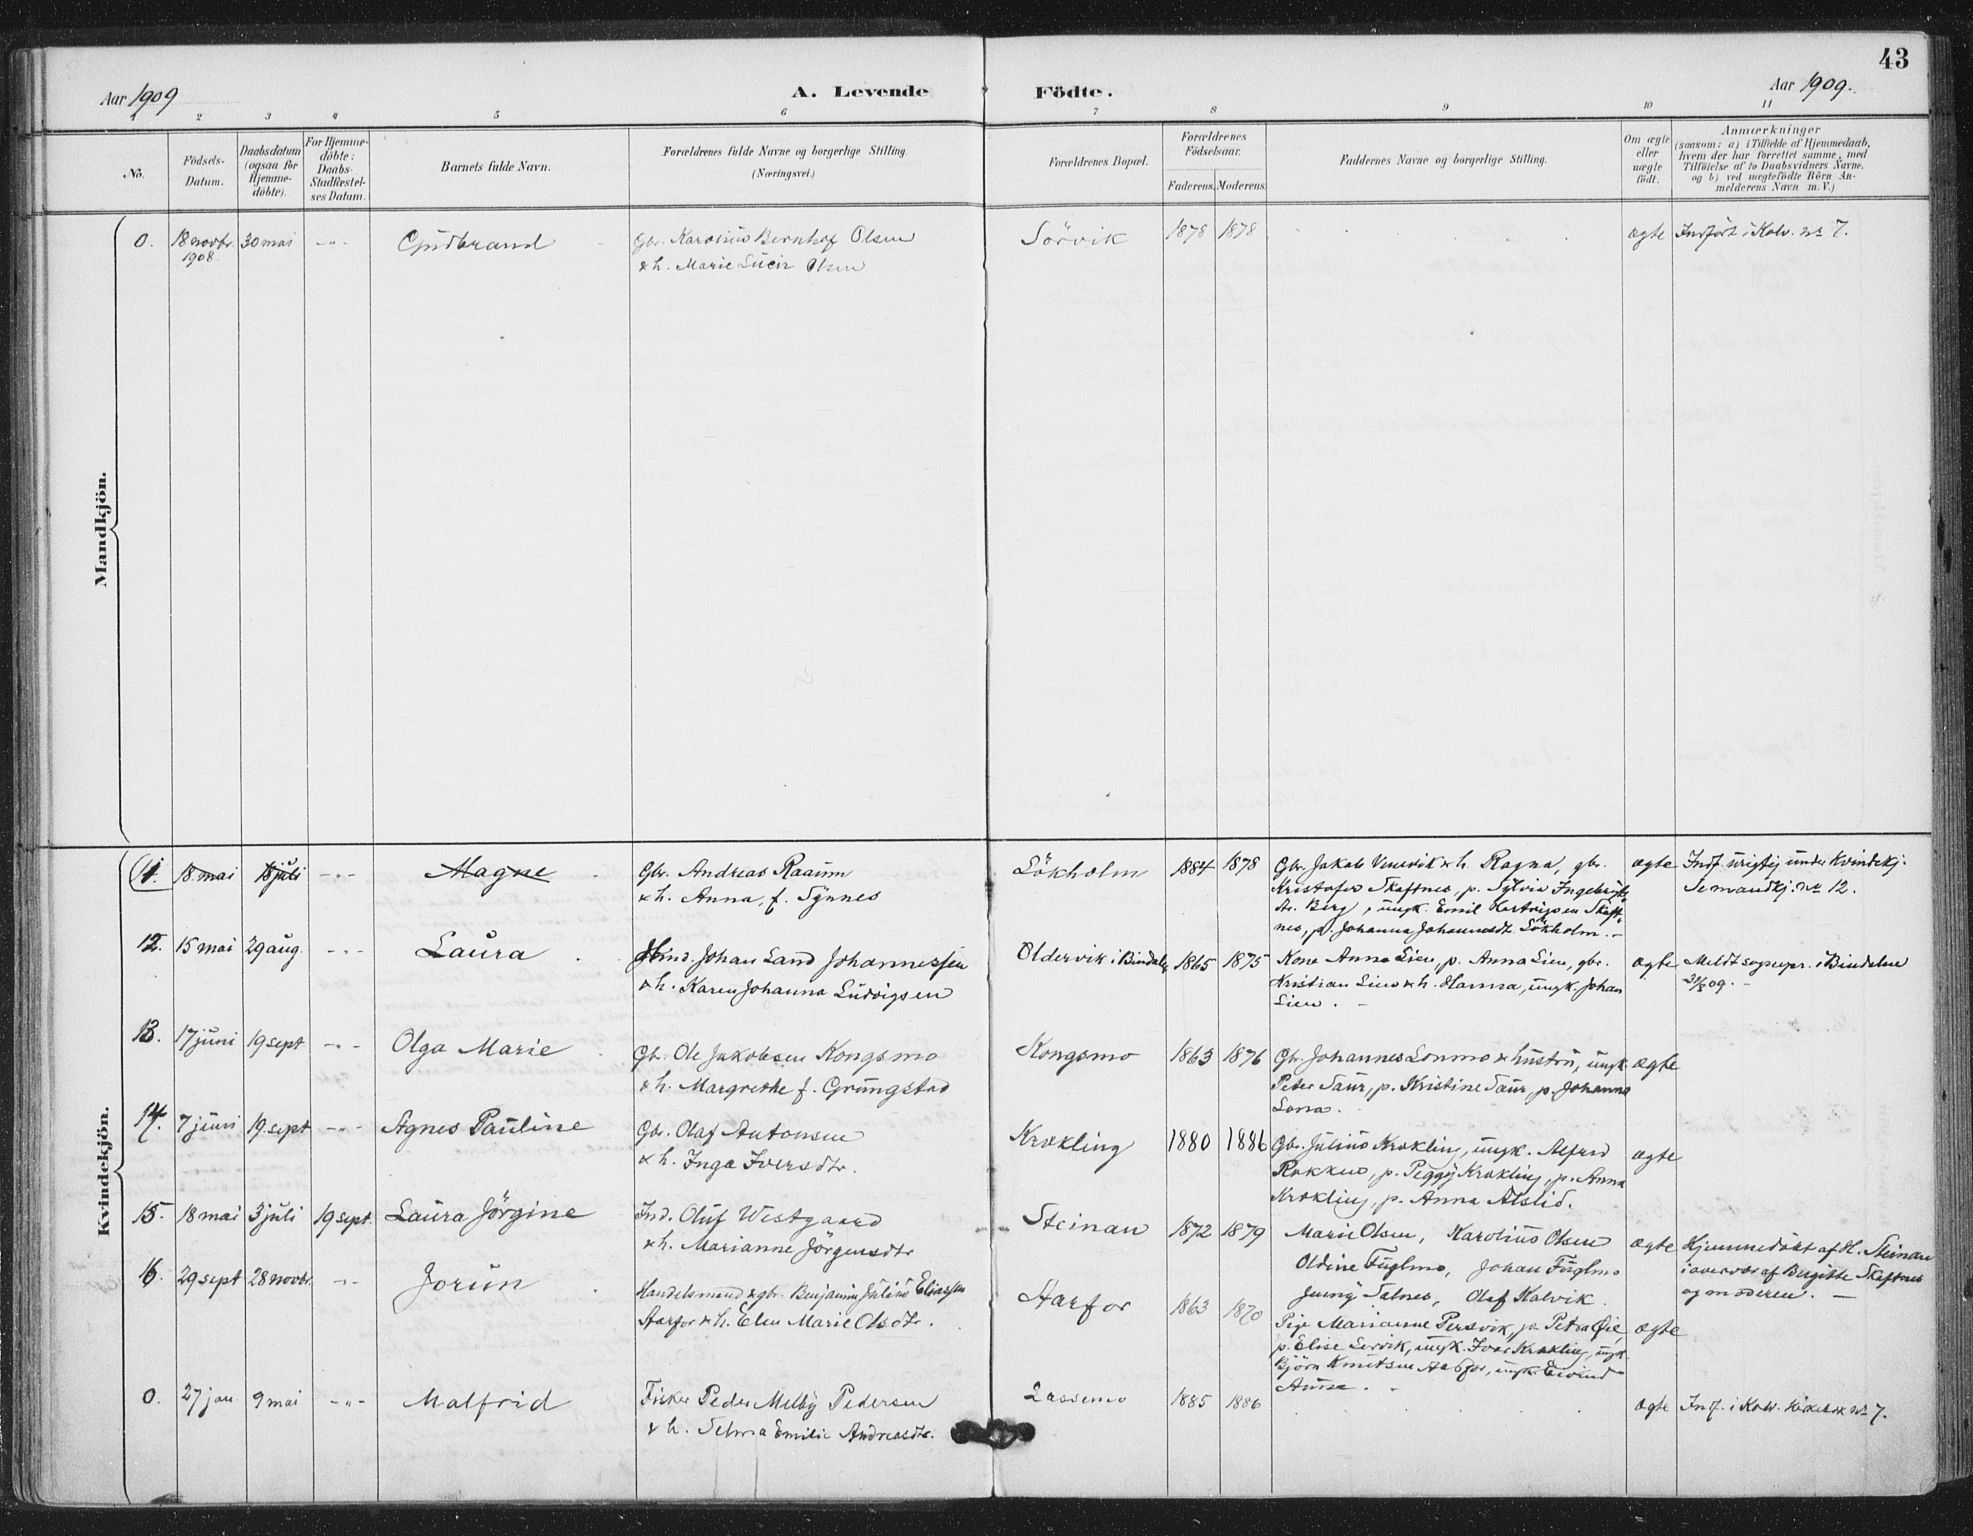 43
Aar 1909
A. Levende
Födte.
Aar 1909.
1 2 3 4 5 6 7 8 9 10 11
No.
Födsels-
Datum.
Daabsdatum
(ogsaa for
Hjemme-
döbte).
For Hjemme-
döbte:
Daabs-
Stadfæstel-
ses Datum.
Barnets fulde Navn.
Forældrenes fulde Navne og borgerlige Stilling.
(Næringsvei.)
Forældrenes Bopæl.
Forældrenes
Födselsaar.
Faderens. Moderens.
Faddernes Navne og borgerlige Stilling.
Om ægte
eller
uægte
födt.
Anmærkninger
(saasom: a) i Tilfælde af Hjemmedaab,
hvem der har forrettet samme, med
Tilföielse af to Daabsvidners Navne,
og b) ved uægtefödte Börn An-
melderens Navn m. V.)
Mandkjön.
0. 18 novbr. 30 mai -"- Gudbrand Gbr. Karolius Bernhof Olsen Sörvik 1878 1878 ægte Indfört i Kolv. nr 7.
1908
& h. Marie Lucie Olsen
Kvindekjön.
11. 18 mai 18 juli -"- Magne Gbr. Andreas Raaum Lökholm 1884 1878 Gbr. Jakob Venevik & h. Ragna, gbr. ægte Indf. urigtig under Kvindekj.
& h. Anna, f. Synnes
Kristofer Skaftnes, p. Sylvia Ingebrigts-
Se mandkj. nr 12.
dtr. Berg, ungk. Emil Hartvigsen Skaft-
nes, p. Johanna Johannesdt. Lökholm.
12. 15 mai 29 aug. -"- Laura Ind. Johan Sand Johannessen Oldervik i Bindalen 1865 1875 Kone Anna Lien, p. Anna Lien, gbr. ægte Meldt sognepr. i Bindalen
& h. Karen Johanna Ludvigsen
Kristian Lien & h. Hanna, ungk. Johan
Lien.
13. 17 juni 19 sept -"- Olga Marie Gbr. Ole Jakobsen Kongsmo Kongsmo 1863 1876 Gbr. Johannes Lonmo & hustru, ungk. ægte
& h. Margrethe f. Grungstad
Peter Saur, p. Kristine Saur, p. Johanna
Lona.
14. 7 juni 19 sept -"- Agnes Pauline Gbr. Olaf Antonsen Krækling 1880 1886 Gbr. Julius Krækling, ungk. Alfred ægte
& h. Inga Iversdtr.
p. Peggy Krækling, p. Anna
Krækling, p. Anna Alslid.
15. 18 mai 3 juli 19 sept. Laura Jörgine Ind. Oluf Westgaard Steinan 1872 1879 Marie Olsen, Karolius Olsen ægte Hjemmedöbt af H. Steinan
& h. Marianne Jörgensdtr
Oldine Fuglmo, Johan Fuglmo
i overvær af Birgitte Skaftnes
Jenny Salnes, Olaf Kalvik.
og moderen.
16. 29 sept 28 novbr. -"- Jorun Handelsmand & gbr. Benjamin Julius Eliassen Aarfor 1863 1870 Pige Marianne Persvik, p. Petra Öie, ægte
Aarfor & h. Elen Marie Olsdtr.
p. Elise Lervik, ungk. Ivar Krækling, ungk.
Björn Knutsen Aarfor, ungk. Eivind
0. 27 jan. 9 mai -"- Malfrid Fisker Peder Melby Pedersen Lassemo 1885 1886 ægte Indf. i Kolv. kirkebok nr 7.
& h. Selma Emilie Andreasdtr.